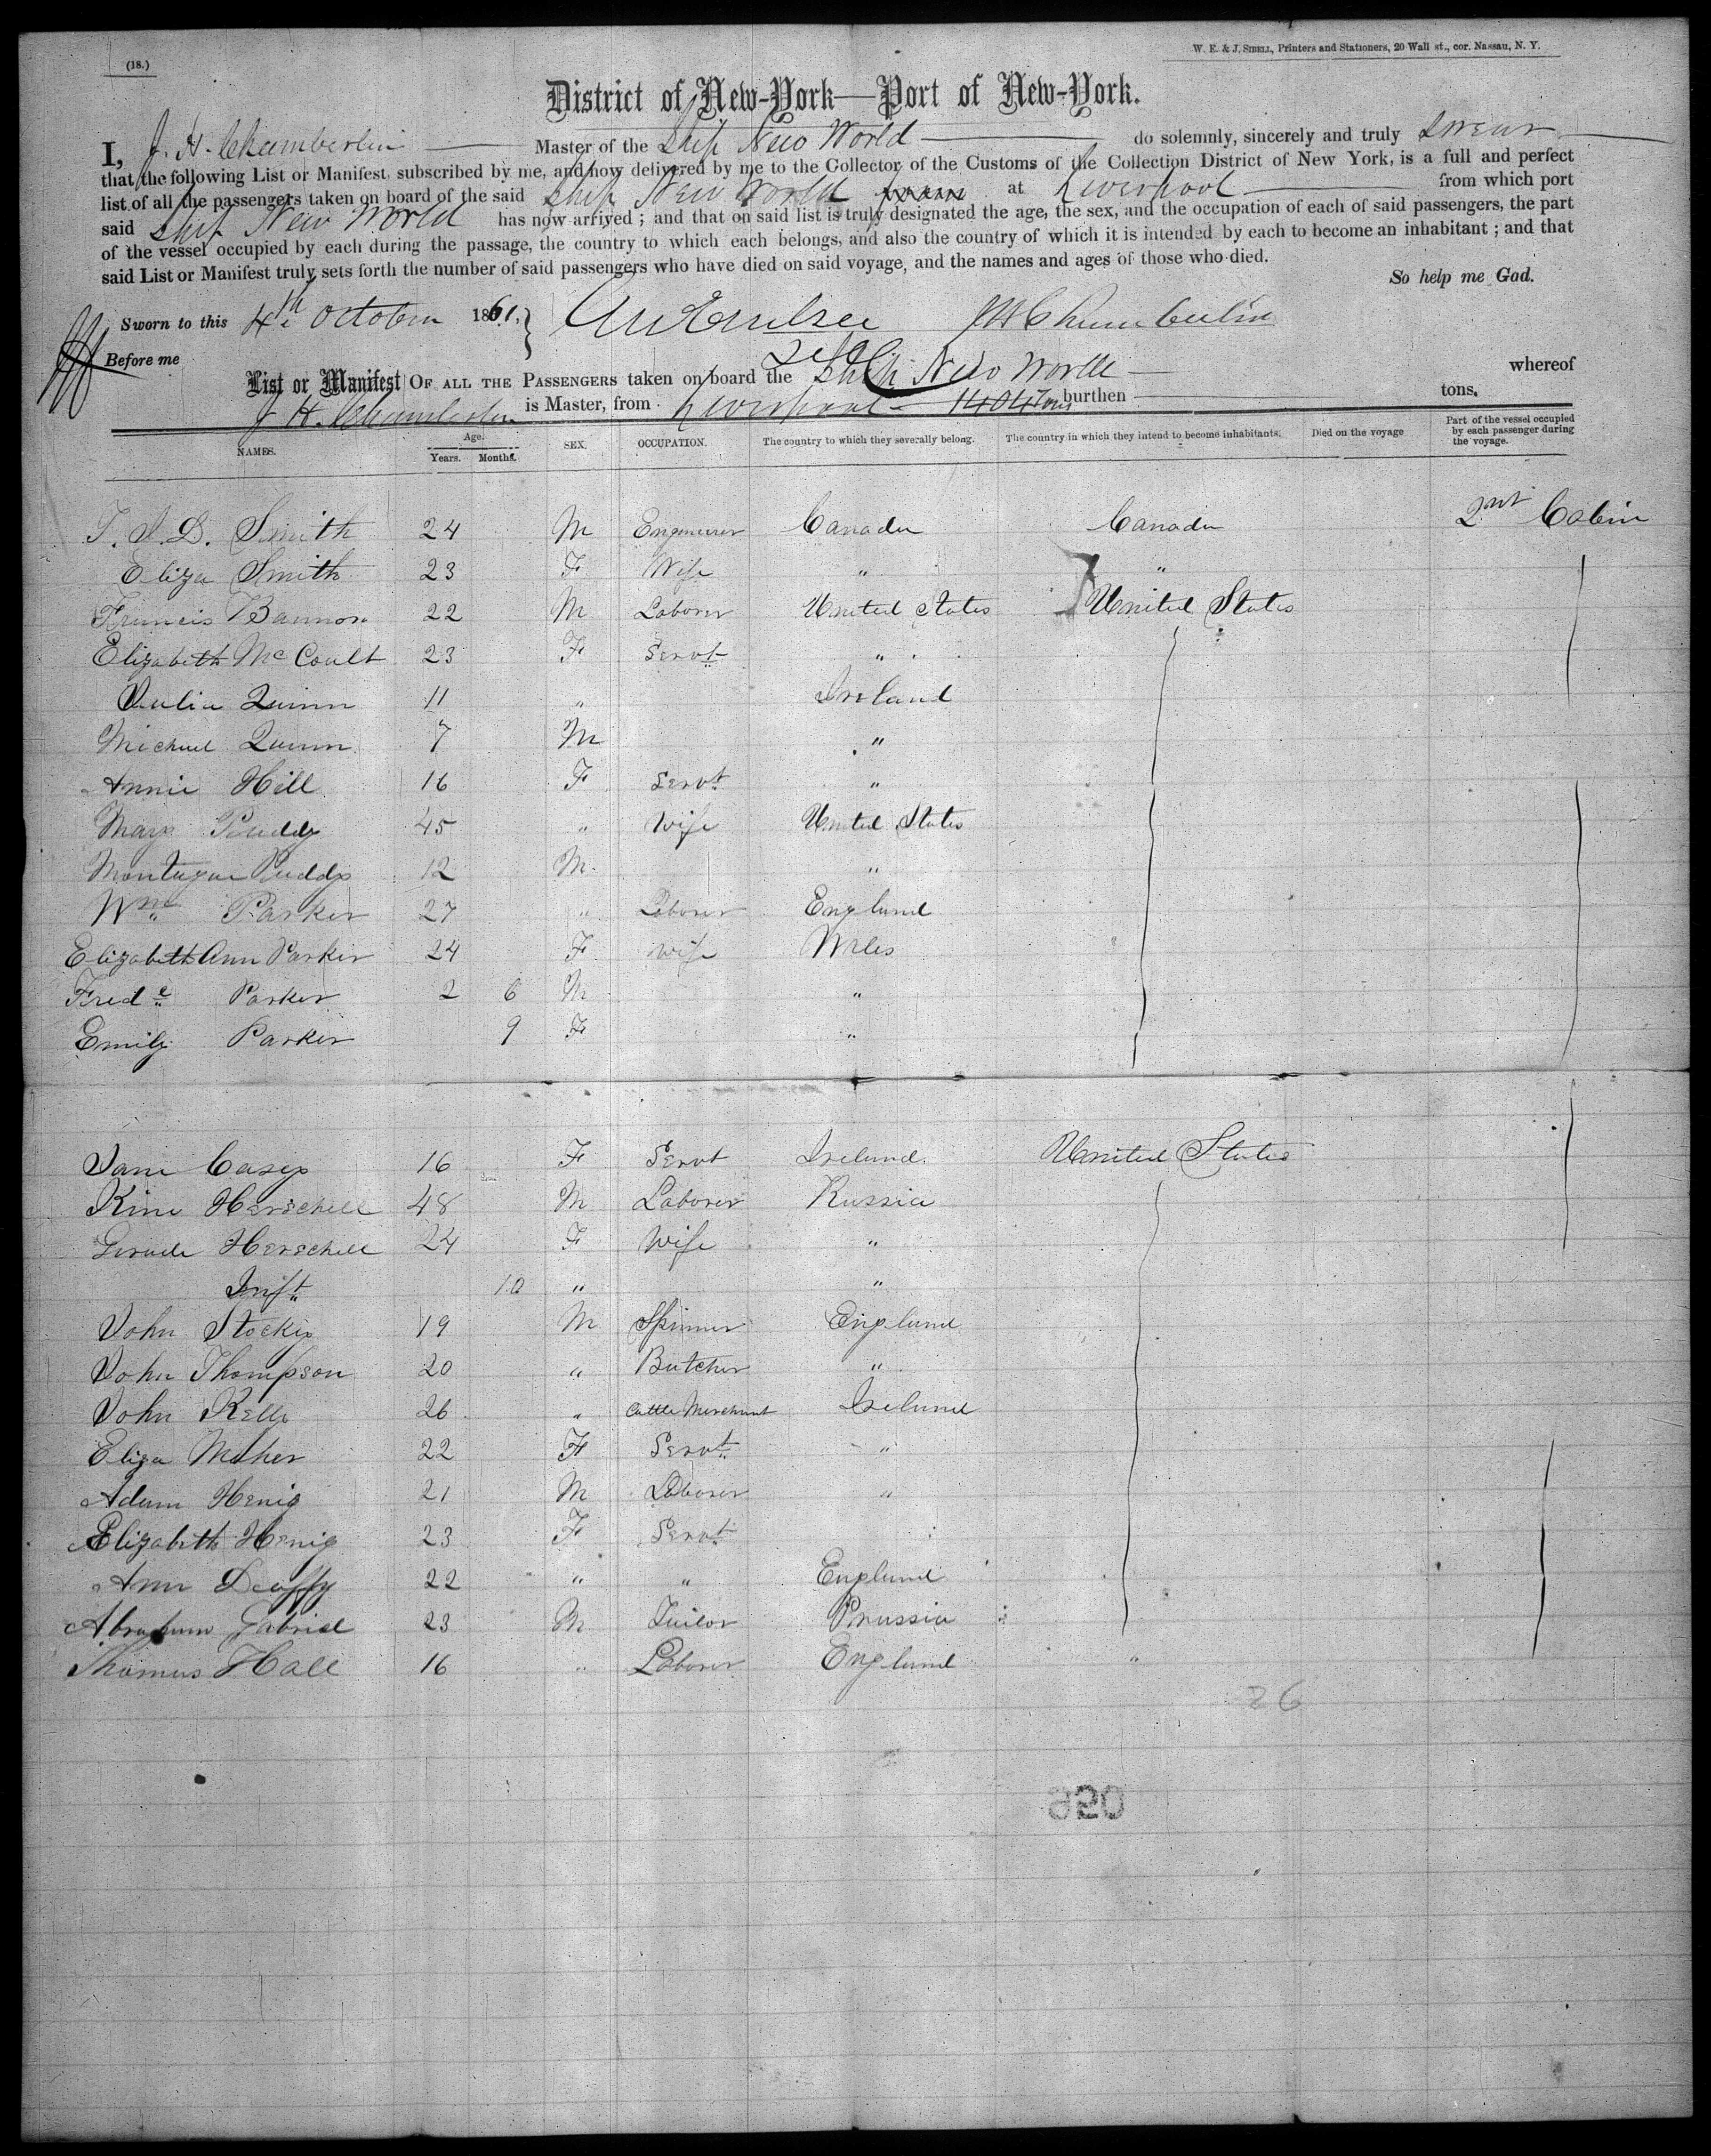 (18.)
W. E. & J. SIBELL, Printers and Stationers, 20 Wall st., cor. Nassau, N. Y.
District of New-York—Port of New-York.
I, J. H. Chamberlin Master of the Ship New World do solemnly, sincerely and truly swear
that the following List or Manifest, subscribed by me, and now delivered by me to the Collector of the Customs of the Collection District of New York, is a full and perfect
list of all the passengers taken on board of the said Ship New World at Liverpool from which port
said Ship New World has now arrived; and that on said list is truly designated the age, the sex, and the occupation of each of said passengers, the part
of the vessel occupied by each during the passage, the country to which each belongs, and also the country of which it is intended by each to become an inhabitant; and that
said List or Manifest truly sets forth the number of said passengers who have died on said voyage, and the names and ages of those who died.
So help me God.
Sworn to this 4th October 1861. J H Chamberlin
Before me
List or Manifest OF ALL THE PASSENGERS taken on board the Ship New World whereof
J H. Chamberlin is Master, from Liverpool 1404 Tons burthen tons.
NAMES. Age. Years. Months. SEX. OCCUPATION. The country to which they severally belong. The country in which they intend to become inhabitants. Died on the voyage Part of the vessel occupied by each passenger during the voyage.
T. I. D. Smith 24 M Engineer Canada Canada 2nd Cabin
Eliza Smith 23 F Wife " "
Francis Bannon 22 M Laborer United States United States
Elizabeth McCoult 23 F Servt "
Julia Quinn 11 " Ireland
Michael Quinn 7 M "
Annie Hill 16 F Servt "
Mary Puddy 45 " Wife United States
Montague Puddy 12 M. "
Wm Parker 27 " Laborer England
Elizabeth Ann Parker 24 F Wife Wales
Fredc Parker 2 6 M "
Emily Parker 9 F "
Jane Casey 16 F Servt Ireland United States
Kine Herschell 48 M Laborer Russia
Herschell 24 F Wife "
Inft 10 " "
John Stockey 19 M Spinner England
John Thompson 20 " Butcher "
John Kelly 26 " Cattle Merchant Ireland
Eliza Maher 22 F Servt "
Adam Henig 21 M Laborer "
Elizabeth Henig 23 F Servt
Ann Duffy 22 " " England
Abraham Gabriel 23 M Tailor Prussia
Thomas Hall 16 " Laborer England "
26